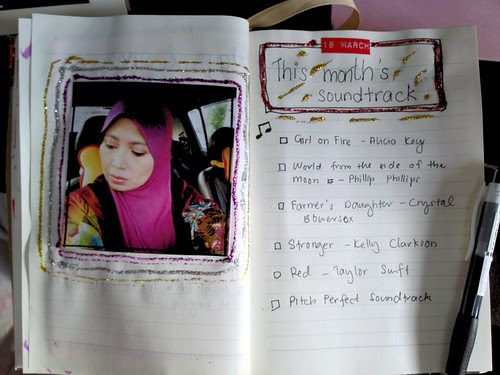 18 MARCH
This month's
soundtrack
Girl on Fire - Alicia Key
World from the side of the
moon - Phillip Phillips
Farmer's Daughter - Crystal
Bowersox
Stronger - Kelly Clarkson
Red - Taylor Swift
Pitch Perfect Soundtrack